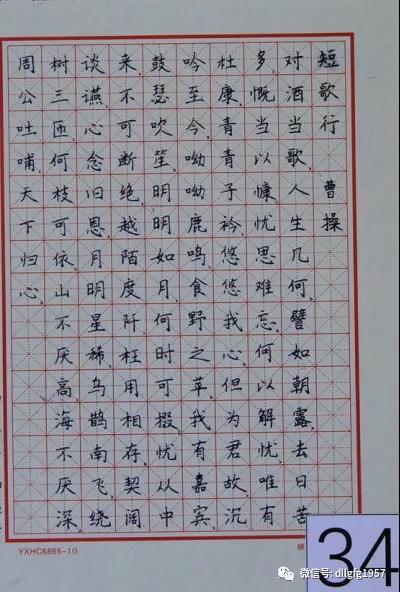 短歌行 曹操
对酒当歌,人生几何,譬如朝露,去日苦
多,慨当以慷,忧思难忘,何以解忧,唯有
杜康,青青子衿,悠悠我心,但为君故,沉
吟至今,呦呦鹿鸣,食野之苹,我有嘉宾,
鼓瑟吹笙,明明如月,何时可掇,忧从中
来,不可断绝,越陌度阡,枉用相存,契阔
谈讌,心念旧恩,月明星稀,乌鹊南飞,绕
树三匝,何枝可依,山不厌高,海不厌深,
周公吐哺,天下归心.
YXHC6865-10
34
微信号: dllgfg1957